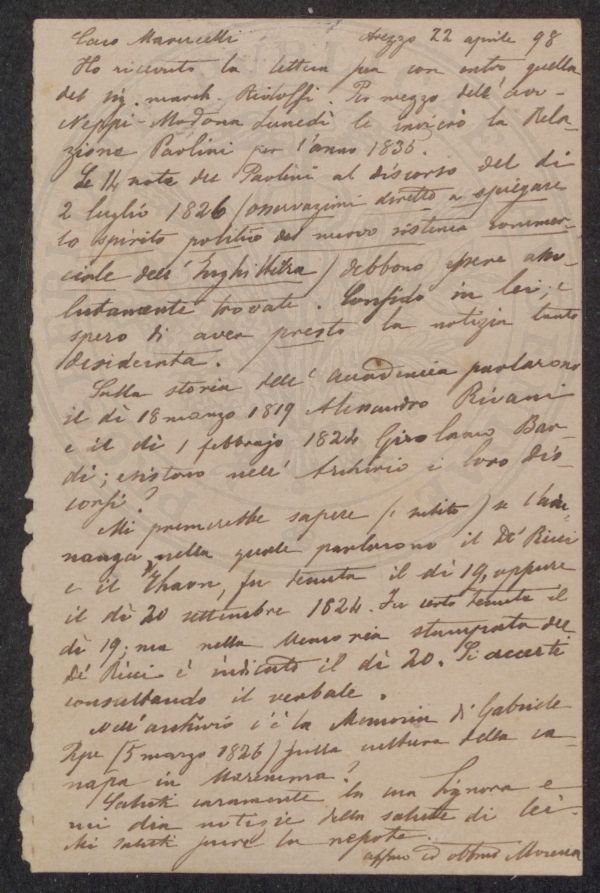 Caro Marucelli Arezzo 22 aprile 98
Ho ricevuto la lettera sua con entro quella
del Sig. march. Ridolfi. Per mezzo dell' avv.
Neppi-Modona Lunedì le invierò la Rela-
zione Paolini per l'anno 1835.
Le 14 note del Paolini al discorso del dì
2 luglio 1826 (osservazioni dirette a spiegare
lo spirito politico del nuovo sistema commer-
ciale dell' Inghilterra) debbono essere asso-
lutamente trovate. Confido in lei; e
spero di aver presto la notizia tanto
desiderata.
Sulla storia dell' accademia parlarono
il dì 18 marzo 1819 Alessandro Rivani
e il dì 1 febbrajo 1824 Girolamo Bar-
di; esistono nell' Archivio i loro dis-
corsi?
Mi premerebbe sapere (e subito) se l'adu-
nanza nella quale parlarono il De' Ricci
e il Thaon, fu tenuta il dì 19, oppure
il dì 20 settembre 1824. Fu certo tenuta il
dì 19; ma nella Memoria stampata del
De' Ricci è indicato il dì 20. Si accerti
consultando il verbale.
Nell' archivio c'è la Memoria di Gabriele
Pepe (5 marzo 1826) sulla cultura della ca-
napa in Maremma?
Saluti caramente la sua Signora e
mi dia notizie della salute di lei.
Mi saluti pure la nepote.
affmo ed obbmo